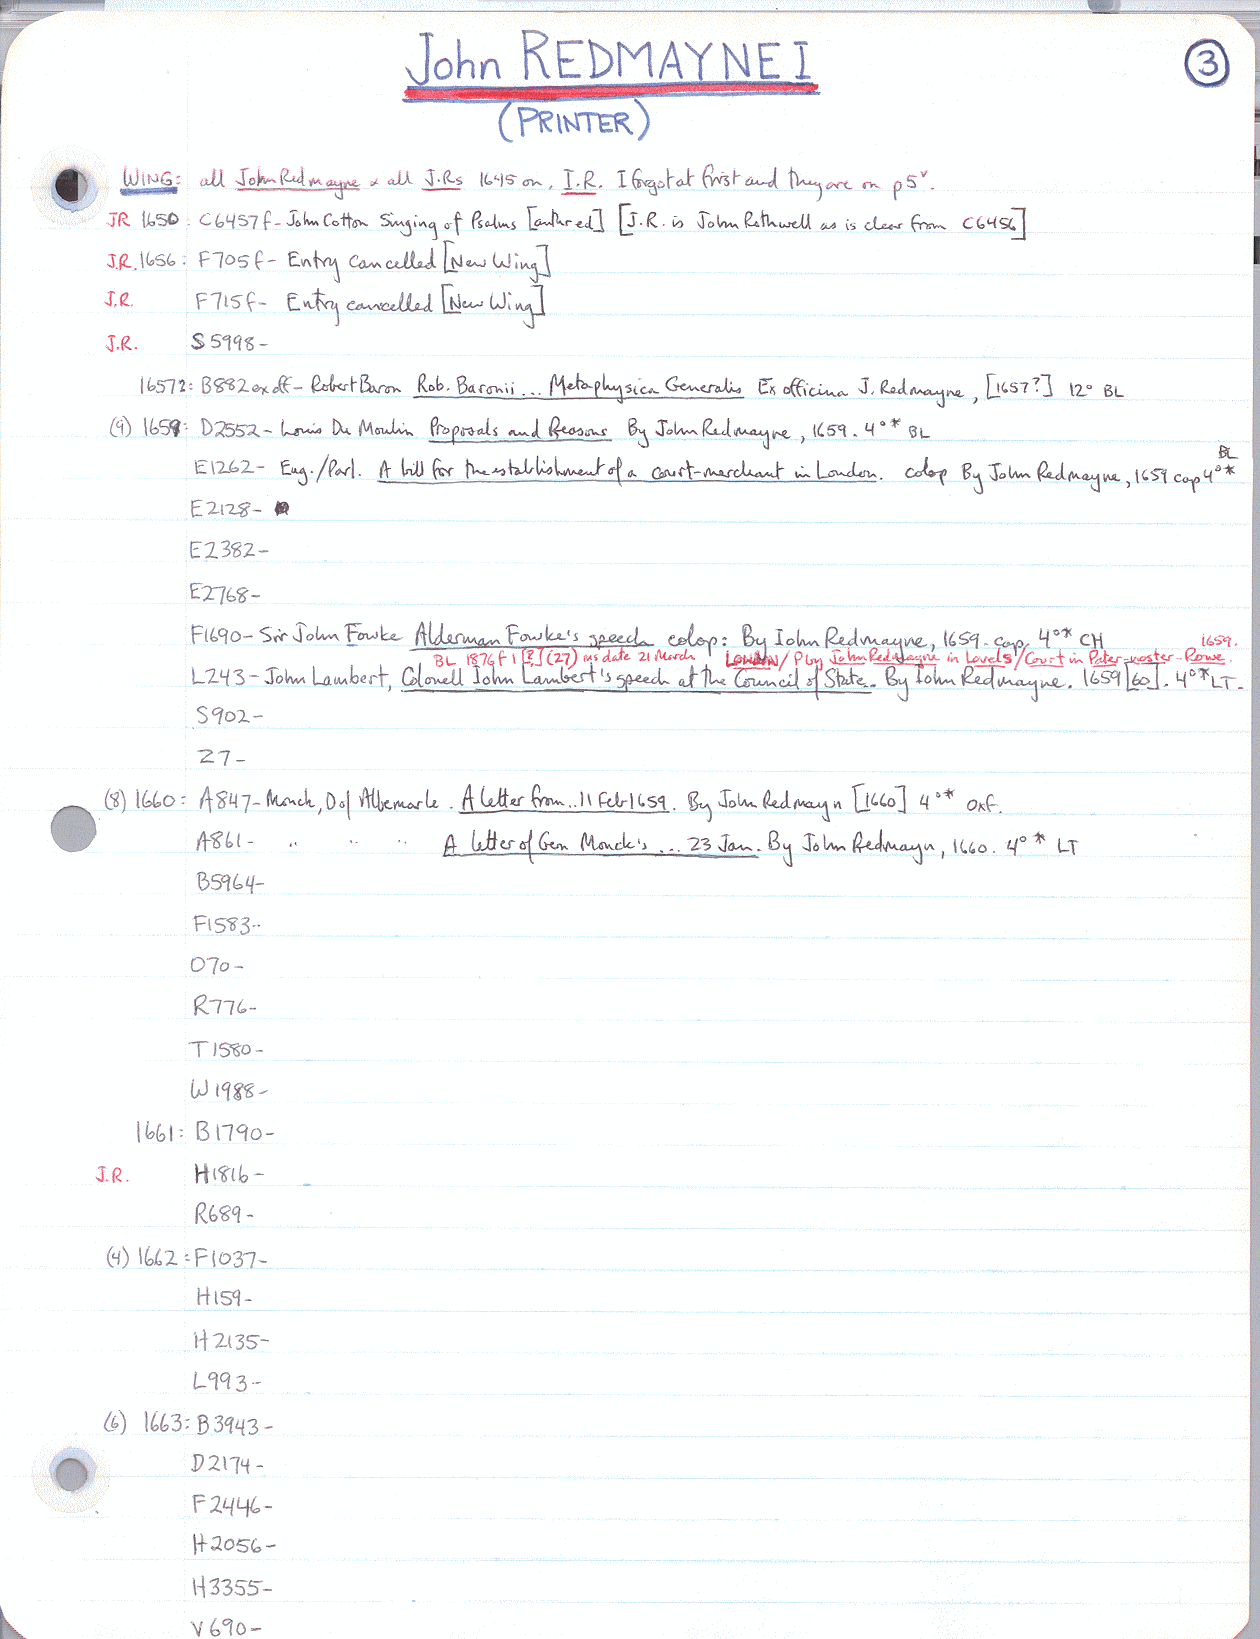 John REDMAYNE I
3
(PRINTER)
WING: all John Redmayne & all J.Rs 1645 on, I.R. I forgot at first and they are on p5v.
JR 1650: C6457f- John Cotton Singing of Psalms [anthred] [J.R. is John Rothwell as is clear from C6456]
J.R. 1656: F705f- Entry cancelled [New Wing]
J.R. F715f- Entry cancelled [New Wing]
J.R. S5998-
1657?: B882 ex off- Robert Baron Rob. Baronii... Metaphysica Generalis Ex officina J. Redmayne, [1657?] 12° BL
(9) 1659: D2552- Louis Du Moulin Proposals and Reasons By John Redmayne, 1659. 4°* BL
E1262- Eng./Parl. A bill for the establishment of a court-merchant in London. colop By John Redmayne, 1659 cap 4°* BL
E2128-
E2382-
E2768-
F1690- Sir John Fowke Alderman Fowke's speech colop: By Iohn Redmayne, 1659. cap. 4°* CH
BL 1876 f 1 [?] (27) ms date 21 March LONDON / P by John Redmayne in Lovels / Court in Pater-noster-Rowe. 1659.
L243- John Lambert, Colonell John Lambert's speech at the Council of State.. By Iohn Redmayne. 1659 [60]. 4°* LT-
S902-
Z7-
(8) 1660: A847- Monck, D of Albemarle. A letter from.. 11 Feb 1659. By John Redmayn [1660] 4°* Oxf.
A861- " " " A letter of Gen Monck's ... 23 Jan. By John Redmayn, 1660. 4°* LT
B5964-
F1583-
O70-
R776-
T1580-
W1988-
1661: B1790-
J.R. H1816-
R689-
(4) 1662: F1037-
H159-
H2135-
L993-
(6) 1663: B3943-
D2174-
F2446-
H2056-
H3355-
V690-